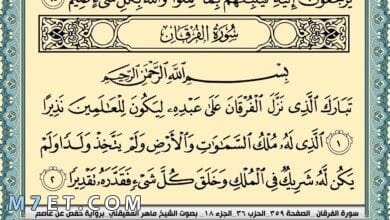 يُرْجَعُونَ إِلَيْهِ فَيُنَبِّئُهُم بِمَا عَمِلُوا۟ وَٱللَّهُ بِكُلِّ شَىْءٍ عَلِيمٌ
سُورَةُ الفُرْقَانِ
بِسْمِ ٱللَّهِ ٱلرَّحْمَٰنِ ٱلرَّحِيمِ
تَبَارَكَ ٱلَّذِى نَزَّلَ ٱلْفُرْقَانَ عَلَىٰ عَبْدِهِۦ لِيَكُونَ لِلْعَٰلَمِينَ نَذِيرًا
١ ٱلَّذِى لَهُۥ مُلْكُ ٱلسَّمَٰوَٰتِ وَٱلْأَرْضِ وَلَمْ يَتَّخِذْ وَلَدًا وَلَمْ
يَكُن لَّهُۥ شَرِيكٌ فِى ٱلْمُلْكِ وَخَلَقَ كُلَّ شَىْءٍ فَقَدَّرَهُۥ تَقْدِيرًا ٢
سورة الفرقان _ الصفحة ٣٥٩ _ الحزب ٣٦ _ الجزء ١٨ _ بصوت الشيخ ماهر المعيقلي _ برواية حفص عن عاصم
M7ET.COM